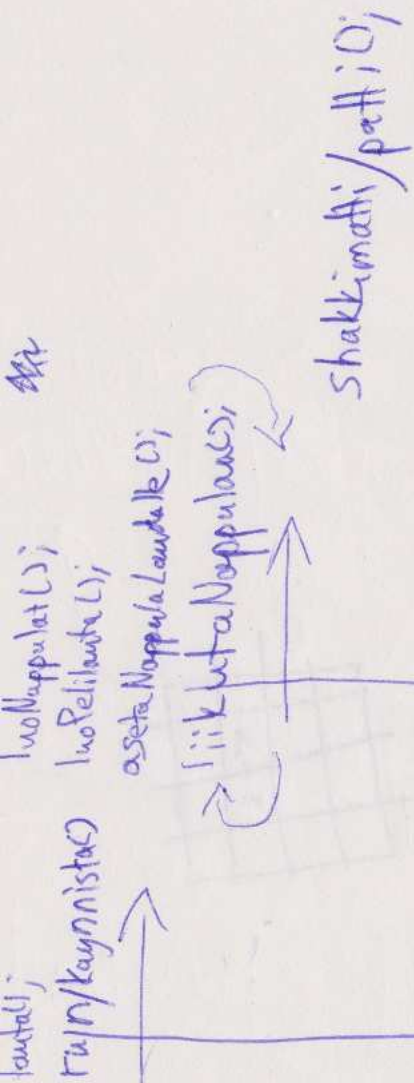 lauta();
run/kaynnista()
luoNappulat();
luoPelilauta();
asetaNappulaLaudalle();
liikutaNappulau();
shakkimatti/patti();